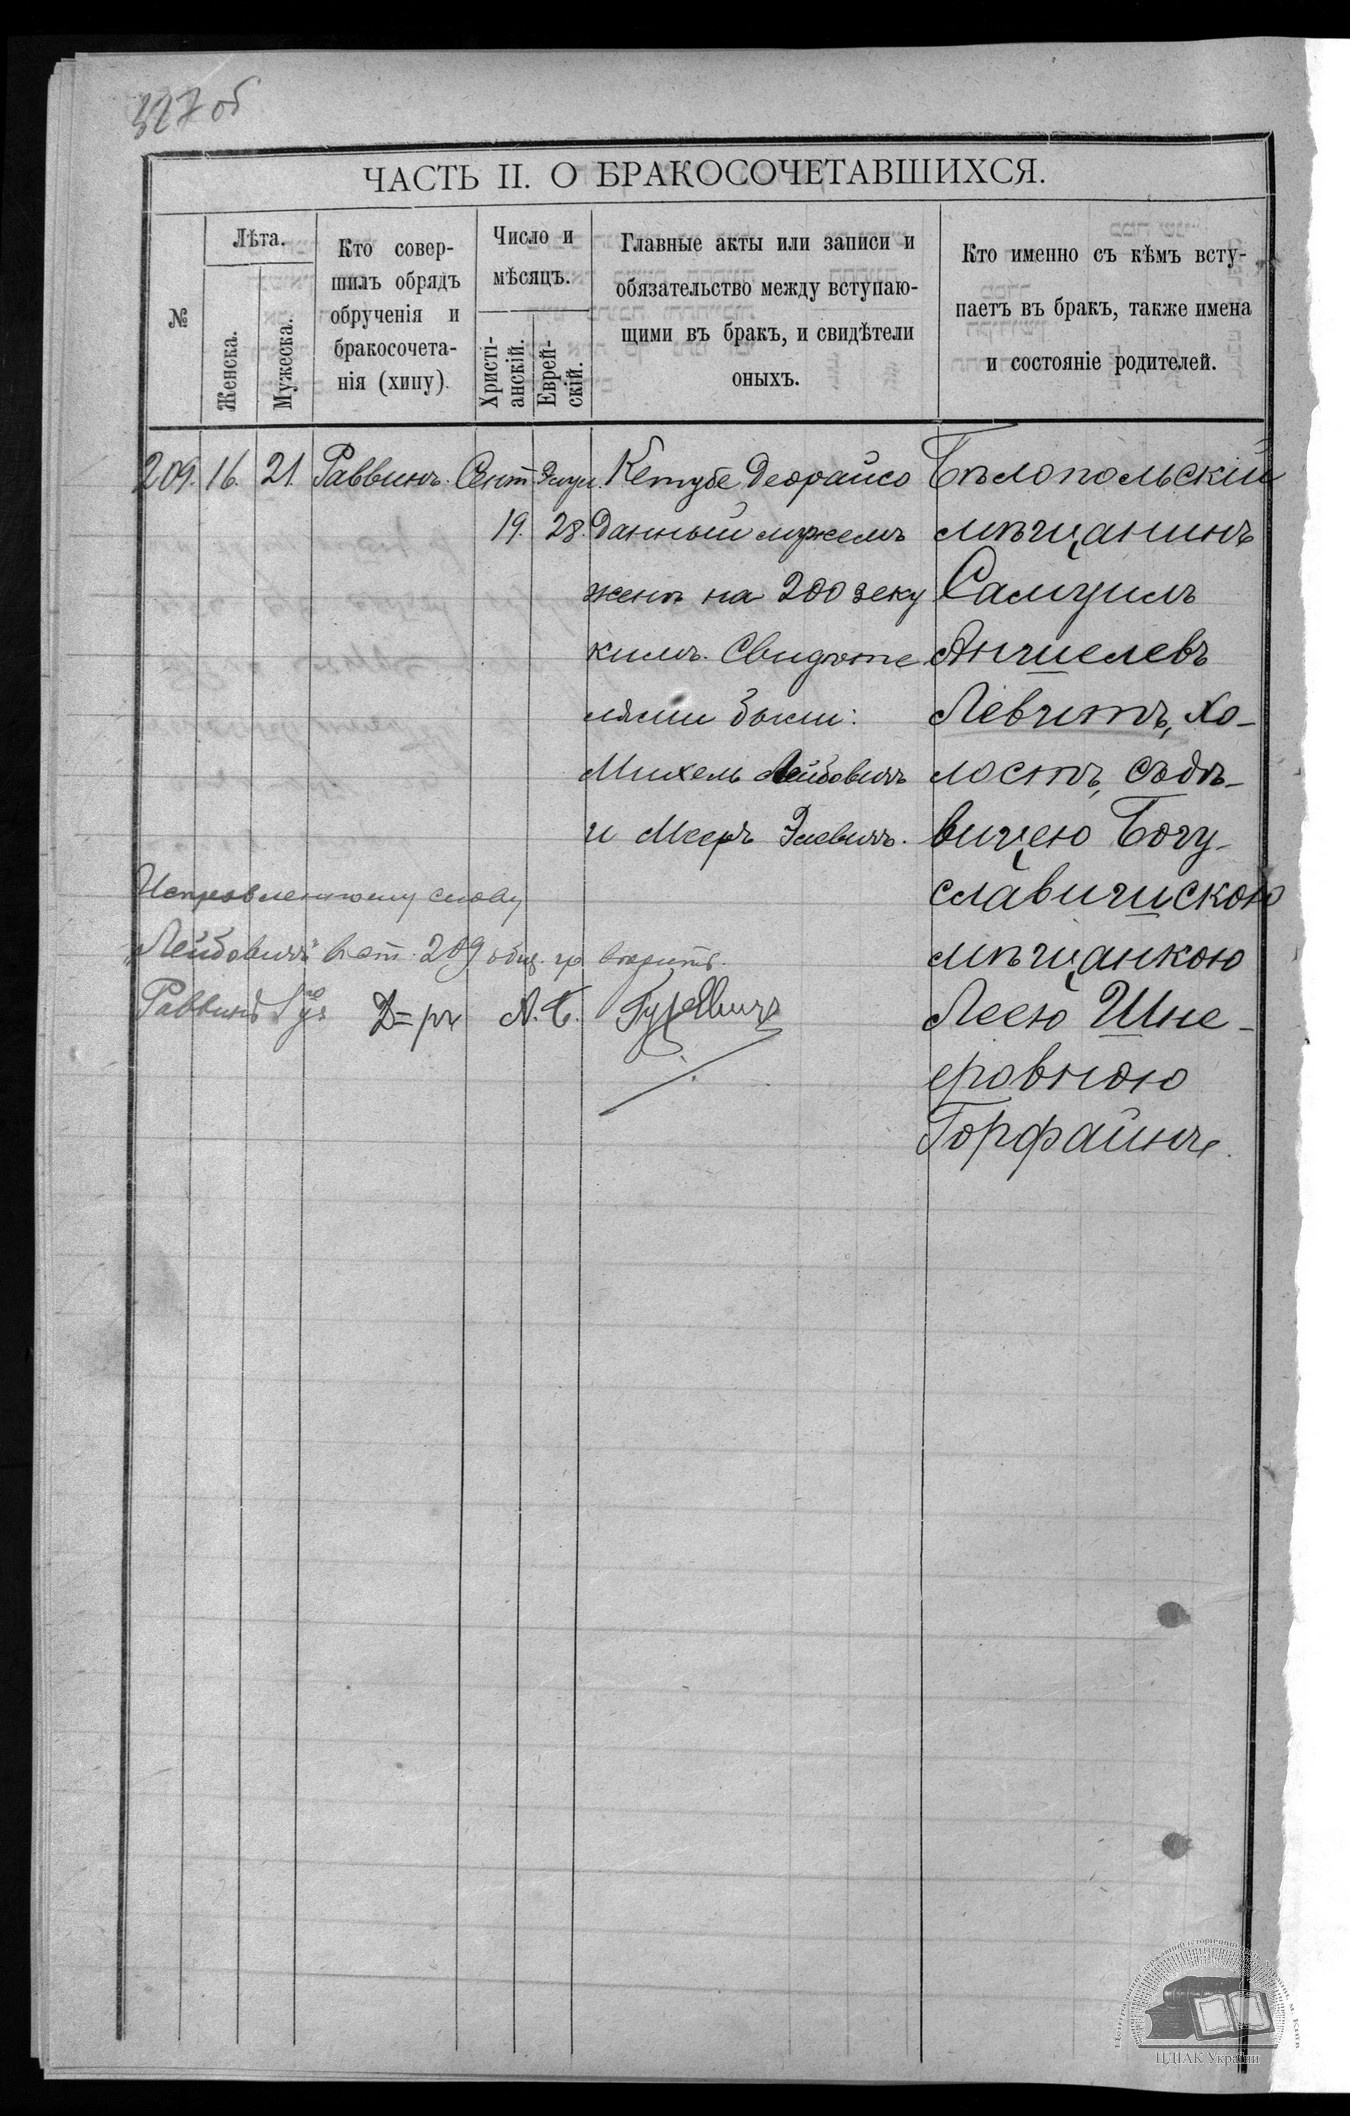 327 об
ЧАСТЬ II. О БРАКОСОЧЕТАВШИХСЯ.
№
Лѣта.
Женска.
Мужеска.
Кто совер-
шилъ обрядъ
обрученія и
бракосочета-
нія (хипу).
Число и
мѣсяцъ.
Христі-
анскій.
Еврей-
скій.
Главные акты или записи и
обязательство между вступаю-
щими въ бракъ, и свидѣтели
оныхъ.
Кто именно съ кѣмъ всту-
паетъ въ бракъ, также имена
и состояніе родителей.
209. 16. 21. Раввинъ. Сент. Элул.
19. 28.
Кетубе Деорайсо
данный мужемъ
женѣ на 200 зеку
кимъ. Свидѣте
лями были:
Михель Лейбовичъ
и Мееръ Элевичъ.
Бѣлопольскій
мѣщанинъ
Самуилъ
Аншелевъ
Левитъ, хо-
лостъ, съ дѣ-
вицею Богу-
славишскою
мѣщанкою
Леею Шне-
еровною
Горфайнъ.
Исправленному слову
„Лейбовичъ" въ ст. 209 общ. гр. вѣрить.
Раввинъ Д=ръ А. Б. Гуревичъ
ЦДІАК України